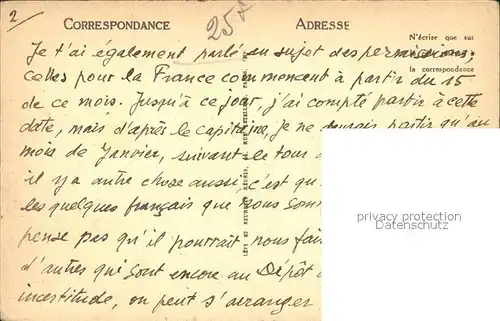 2
CORRESPONDANCE
25
ADRESSE
N'écrire que sur
la correspondance
Je t'ai également parlé au sujet des permissions,
celles pour la France commencent à partir du 15
de ce mois. Jusqu'à ce jour, j'ai compté partir à cette
date, mais d'après le capitaine, je ne saurais partir qu'au
mois de Janvier, suivant le tour
il y a autre chose aussi, c'est qu
les quelques français que nous som
pense pas qu'il pourrait nous fai
d'autres qui sont encore au Dépôt
incertitude, on peut s'arranger
privacy protection
Datenschutz